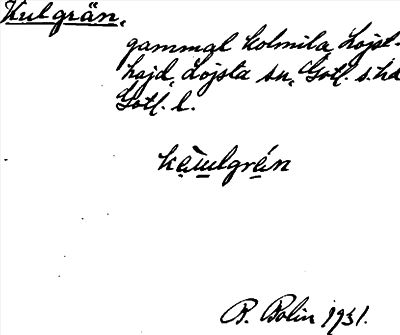 Kulgrän,
gammal kolmila, Lojst-
hajd, Lojsta sn, Gotl. s. hd
Gotl. l.
kæ̀ulgrán
R. Bolin 1931.